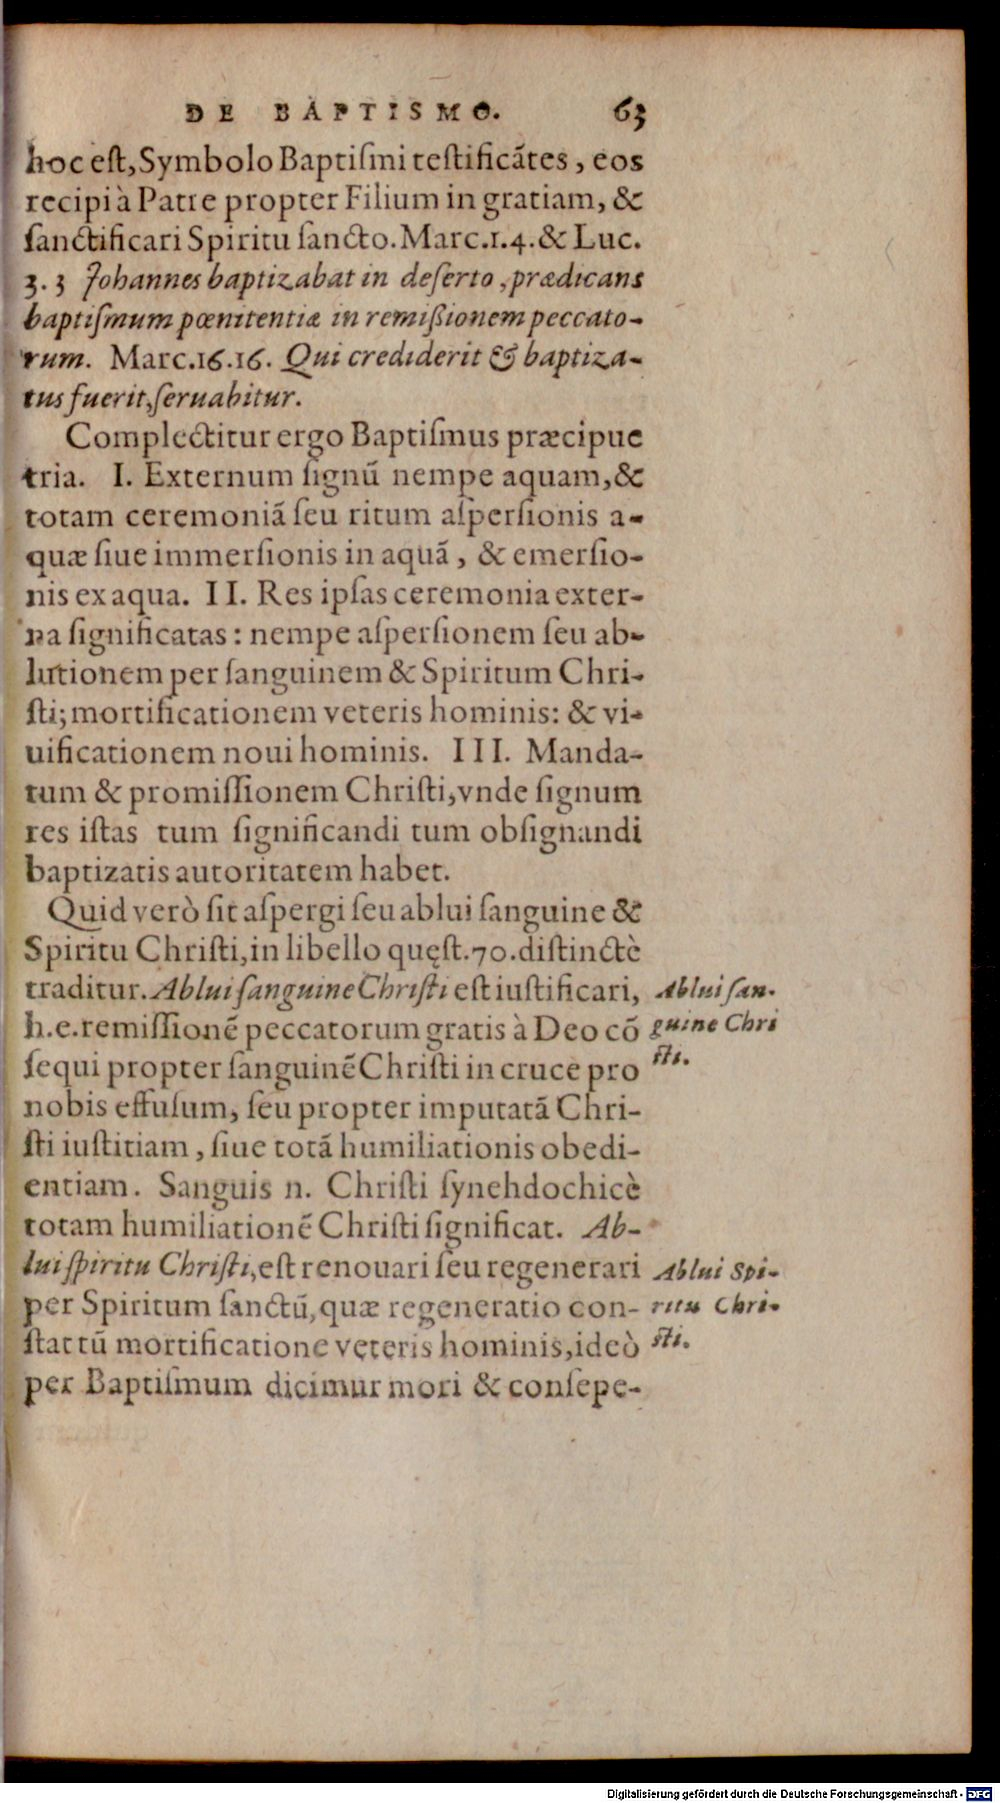 DE BAPTISMO. 63
hoc est, Symbolo Baptiſmi teſtificãtes, eos
recipi à Patre propter Filium in gratiam, &
ſanctificari Spiritu ſancto. Marc.1.4. & Luc.
3.3 Johannes baptizabat in deſerto, prædicans
baptiſmum pœnitentiæ in remißionem peccato-
rum. Marc.16.16. Qui crediderit & baptiza-
tus fuerit, ſeruabitur.
Complectitur ergo Baptiſmus præcipue
tria. I. Externum ſignũ nempe aquam, &
totam ceremoniã ſeu ritum aſperſionis a-
quæ ſiue immerſionis in aquã, & emerſio-
nis ex aqua. II. Res ipſas ceremonia exter-
na ſignificatas: nempe aſperſionem ſeu ab-
lutionem per ſanguinem & Spiritum Chri-
ſti; mortificationem veteris hominis: & vi-
uificationem noui hominis. III. Manda-
tum & promiſſionem Chriſti, vnde ſignum
res iſtas tum ſignificandi tum obſignandi
baptizatis autoritatem habet.
Quid verò ſit aſpergi ſeu ablui ſanguine &
Spiritu Chriſti, in libello quęſt.70. diſtinctè
traditur. Ablui ſanguine Chriſti est iuſtificari,
h.e. remiſſionẽ peccatorum gratis à Deo cõ
ſequi propter ſanguinẽ Chriſti in cruce pro
nobis effuſum, ſeu propter imputatã Chri-
ſti iuſtitiam, ſiue totã humiliationis obedi-
entiam. Sanguis n. Chriſti ſynehdochicè
totam humiliationẽ Chriſti ſignificat. Ab-
lui ſpiritu Chriſti, est renouari ſeu regenerari
per Spiritum ſanctũ, quæ regeneratio con-
ſtat tũ mortificatione veteris hominis, ideò
per Baptiſmum dicimur mori & conſepe-
Ablui ſan-
guine Chri
ſti.
Ablui Spi-
ritu Chri-
ſti.
Digitalisierung gefördert durch die Deutsche Forschungsgemeinschaft - DFG